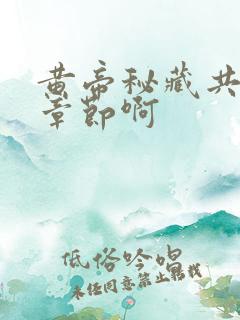 黄帝秘藏共
章節啊
低俗吟唱
未經同意禁止我